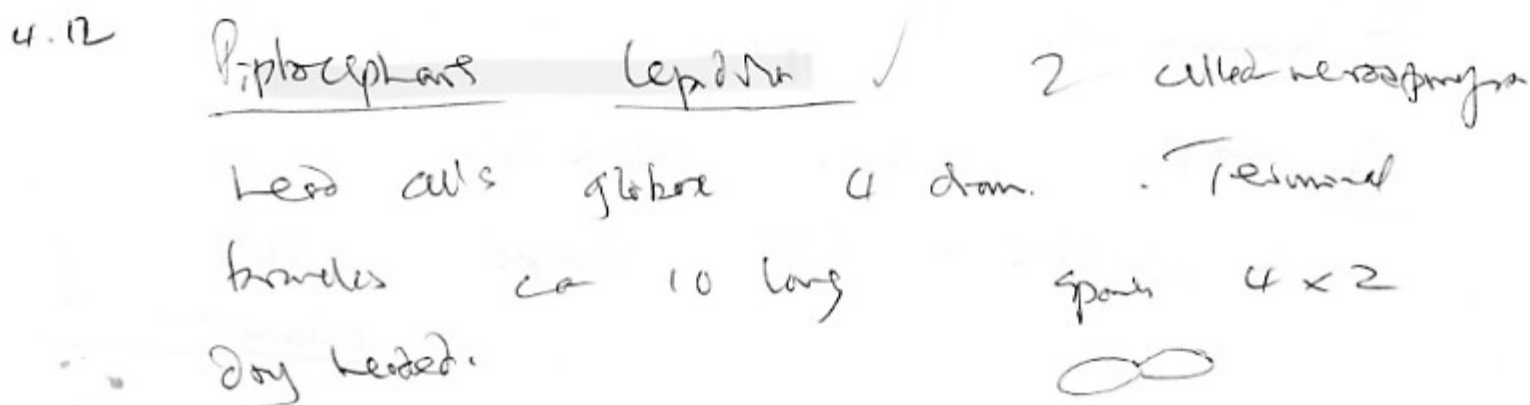 4.12 Piptocephalis lepidula ✓ 2 celled merosporangia
head cells globose 4 diam. . Terminal
branches ca 10 long spores 4 x 2
dry headed.